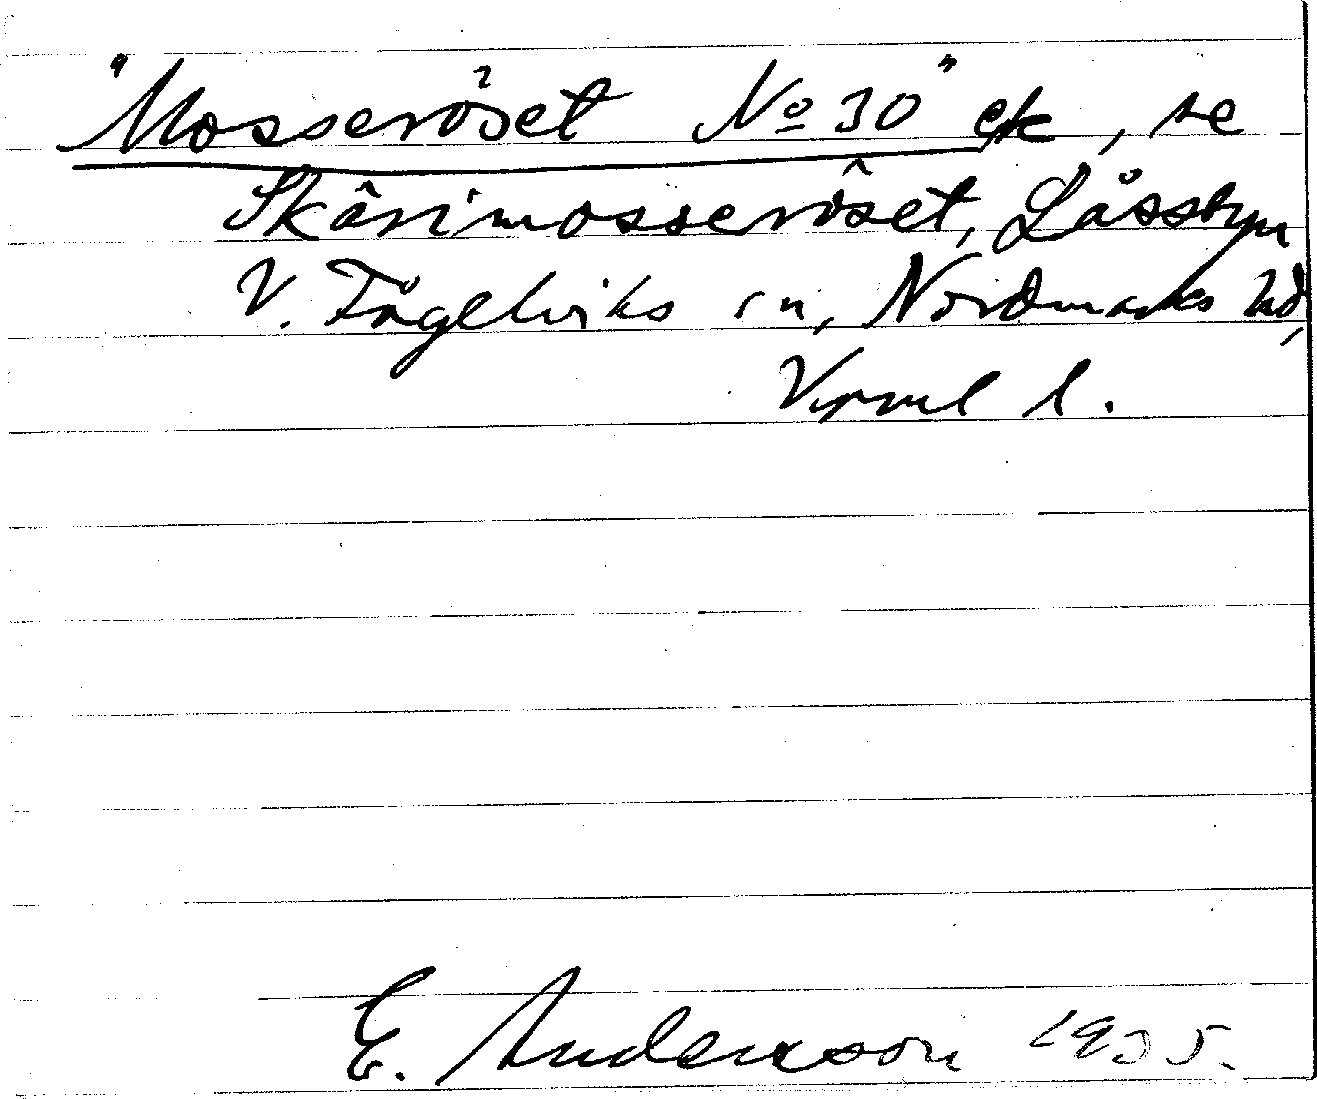 "Mosseröset No 30" ek, se
Skärimosseröset, Låssbyn
V. Fågelviks sn, Nordmarks hd,
Vrml l.
E. Andersson 1935.